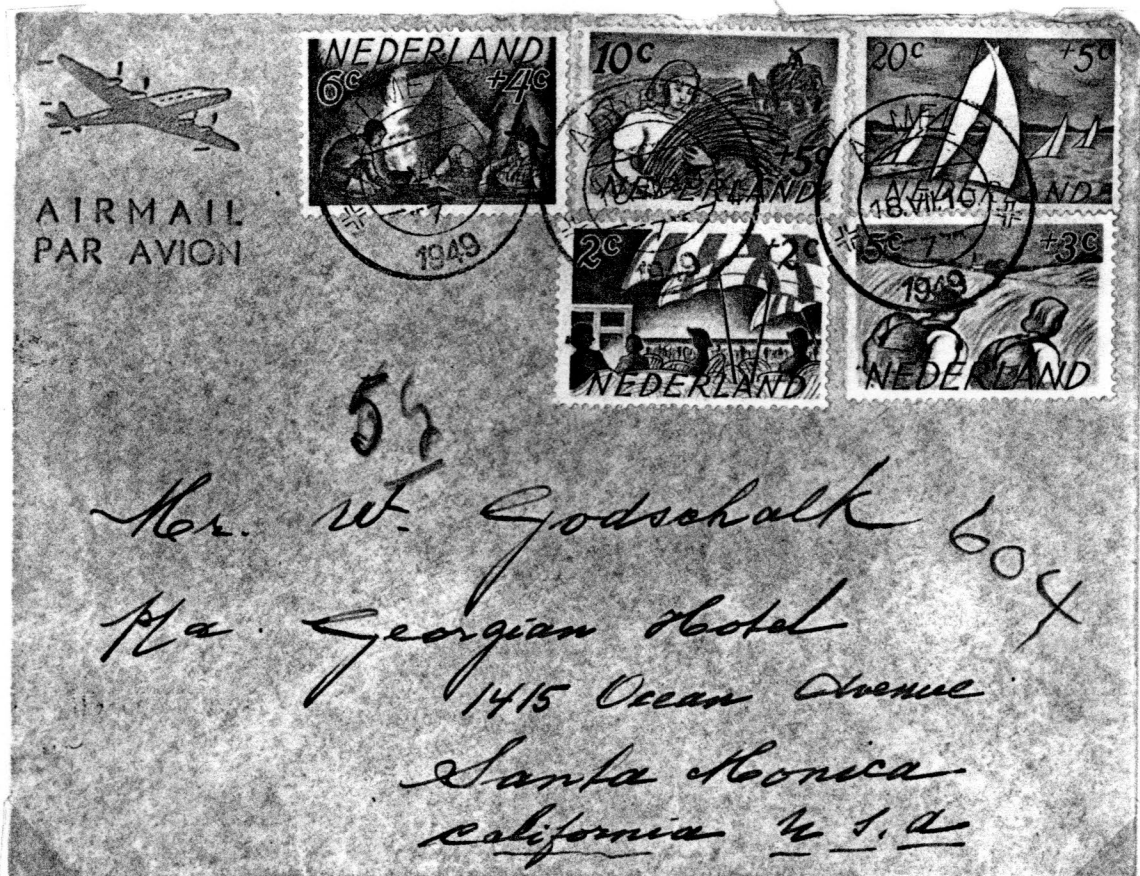 AIRMAIL
PAR AVION
NEDERLAND
6c +4c
10c
+5c
NEDERLAND
20c +5c
NEDERLAND
2c +2c
NEDERLAND
5c +3c
NEDERLAND
1949
1949
18.VII.
1949
Mr. W. Godschalk
604
p/a. Georgian Hotel
1415 Ocean Avenue
Santa Monica
California U.S.A